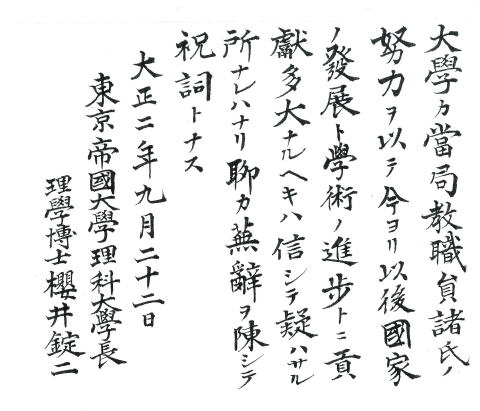 大學カ當局教職員諸氏ノ
努力ヲ以テ今ヨリ以後國家
ノ發展ト學術ノ進步トニ貢
獻多大ナルヘキハ信シテ疑ハサル
所ナレハナリ聊カ蕪辭ヲ陳シテ
祝詞トナス
大正二年九月二十二日
東京帝國大學理科大學長
理學博士櫻井錠二